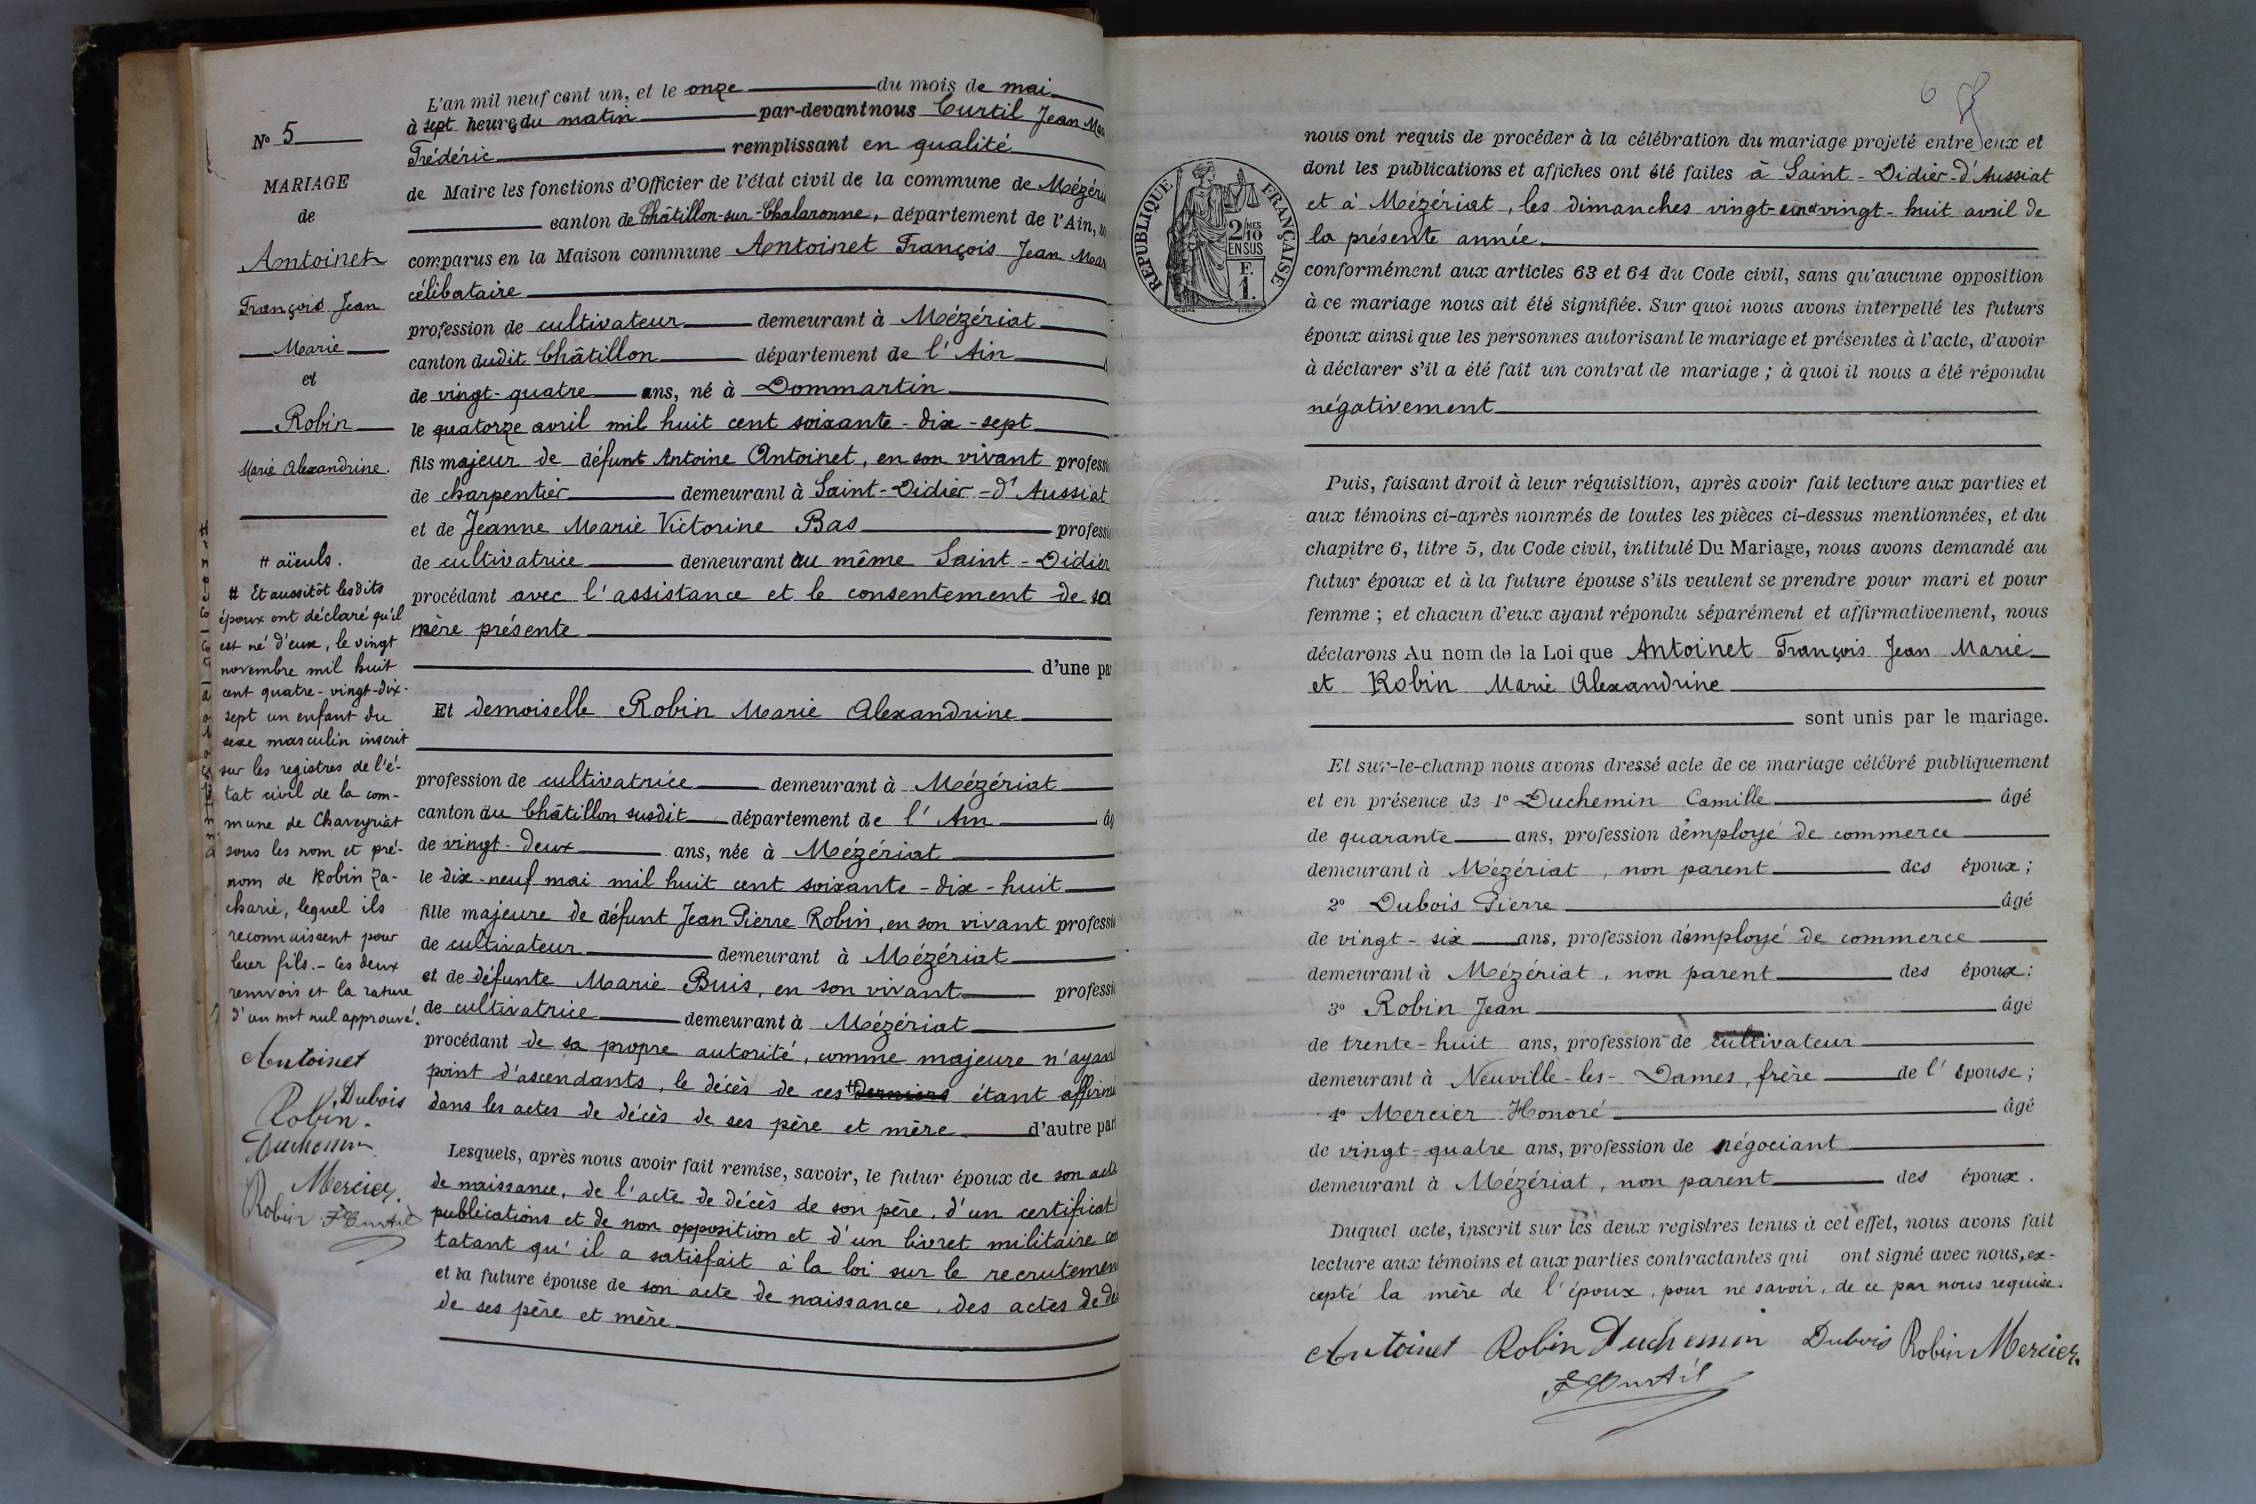 Nº 5
MARIAGE
de
Antoinet
François Jean
Marie
et
Robin
Marie Alexandrine.
# aïeuls.
# Et aussitôt lesdits
époux ont déclaré qu'il
est né d'eux, le vingt
novembre mil huit
cent quatre-vingt-dix-
sept un enfant du
sexe masculin inscrit
sur les registres de l'é-
tat civil de la com-
mune de Chaveyriat
sous les nom et pré-
nom de Robin Za-
charie, lequel ils
reconnaissent pour
leur fils. - Ces deux
renvois et la rature
d'un mot nul approuvé.
Antoinet
Dubois
Robin.
Duchemin
Mercier.
Robin F Curtil
L'an mil neuf cent un, et le onze du mois de mai
à sept heures du matin par-devant nous Curtil Jean
Frédéric remplissant en qualité
de Maire les fonctions d'Officier de l'état civil de la commune de Mézéri
canton de Châtillon-sur-Chalaronne, département de l'Ain, s
comparus en la Maison commune Antoinet François Jean Mar
célibataire
profession de cultivateur demeurant à Mézériat
canton dudit Châtillon département de l'Ain
de vingt-quatre ans, né à Dommartin
le quatorze avril mil huit cent soixante-dix-sept
fils majeur de défunt Antoine Antoinet, en son vivant profess
de charpentier demeurant à Saint-Didier-d'Aussiat
et de Jeanne Marie Victorine Bas profess
de cultivatrice demeurant au même Saint-Didier
procédant avec l'assistance et le consentement de sa
mère présente
d'une pa
Et demoiselle Robin Marie Alexandrine
profession de cultivatrice demeurant à Mézériat
canton du Châtillon susdit département de l'Ain âg
de vingt-deux ans, née à Mézériat
le dix-neuf mai mil huit cent soixante-dix-huit
fille majeure de défunt Jean Pierre Robin, en son vivant professi
de cultivateur demeurant à Mézériat
et de défunte Marie Buis, en son vivant professi
de cultivatrice demeurant à Mézériat
procédant de sa propre autorité, comme majeure n'ayant
point d'ascendants, le décès de ces # derniers étant affirmé
dans les actes de décès de ses père et mère d'autre part
Lesquels, après nous avoir fait remise, savoir, le futur époux de son acte
de naissance, de l'acte de décès de son père, d'un certificat
publications et de non opposition et d'un livret militaire co
tatant qu'il a satisfait à la loi sur le recrutemen
et la future épouse de son acte de naissance, des actes de dé
de ses père et mère
6
RÉPUBLIQUE FRANÇAISE
2/MES
10
EN SUS
F.
1.
nous ont requis de procéder à la célébration du mariage projeté entre eux et
dont les publications et affiches ont été faites à Saint-Didier-d'Aussiat
et à Mézériat, les dimanches vingt-un et vingt-huit avril de
la présente année
conformément aux articles 63 et 64 du Code civil, sans qu'aucune opposition
à ce mariage nous ait été signifiée. Sur quoi nous avons interpellé les futurs
époux ainsi que les personnes autorisant le mariage et présentes à l'acte, d'avoir
à déclarer s'il a été fait un contrat de mariage ; à quoi il nous a été répondu
négativement
Puis, faisant droit à leur réquisition, après avoir fait lecture aux parties et
aux témoins ci-après nommés de toutes les pièces ci-dessus mentionnées, et du
chapitre 6, titre 5, du Code civil, intitulé Du Mariage, nous avons demandé au
futur époux et à la future épouse s'ils veulent se prendre pour mari et pour
femme ; et chacun d'eux ayant répondu séparément et affirmativement, nous
déclarons Au nom de la Loi que Antoinet François Jean Marie
et Robin Marie Alexandrine
sont unis par le mariage.
Et sur-le-champ nous avons dressé acte de ce mariage célébré publiquement
et en présence de 1º Duchemin Camille âgé
de quarante ans, profession d'employé de commerce
demeurant à Mézériat, non parent des époux ;
2º Dubois Pierre âgé
de vingt-six ans, profession d'employé de commerce
demeurant à Mézériat, non parent des époux ;
3º Robin Jean âgé
de trente-huit ans, profession de cultivateur
demeurant à Neuville-les-Dames, frère de l'épouse ;
4º Mercier Honoré âgé
de vingt-quatre ans, profession de négociant
demeurant à Mézériat, non parent des époux.
Duquel acte, inscrit sur les deux registres tenus à cet effet, nous avons fait
lecture aux témoins et aux parties contractantes qui ont signé avec nous, ex-
cepté la mère de l'époux, pour ne savoir, de ce par nous requise.
Antoinet Robin Duchemin Dubois Robin Mercier.
F Curtil